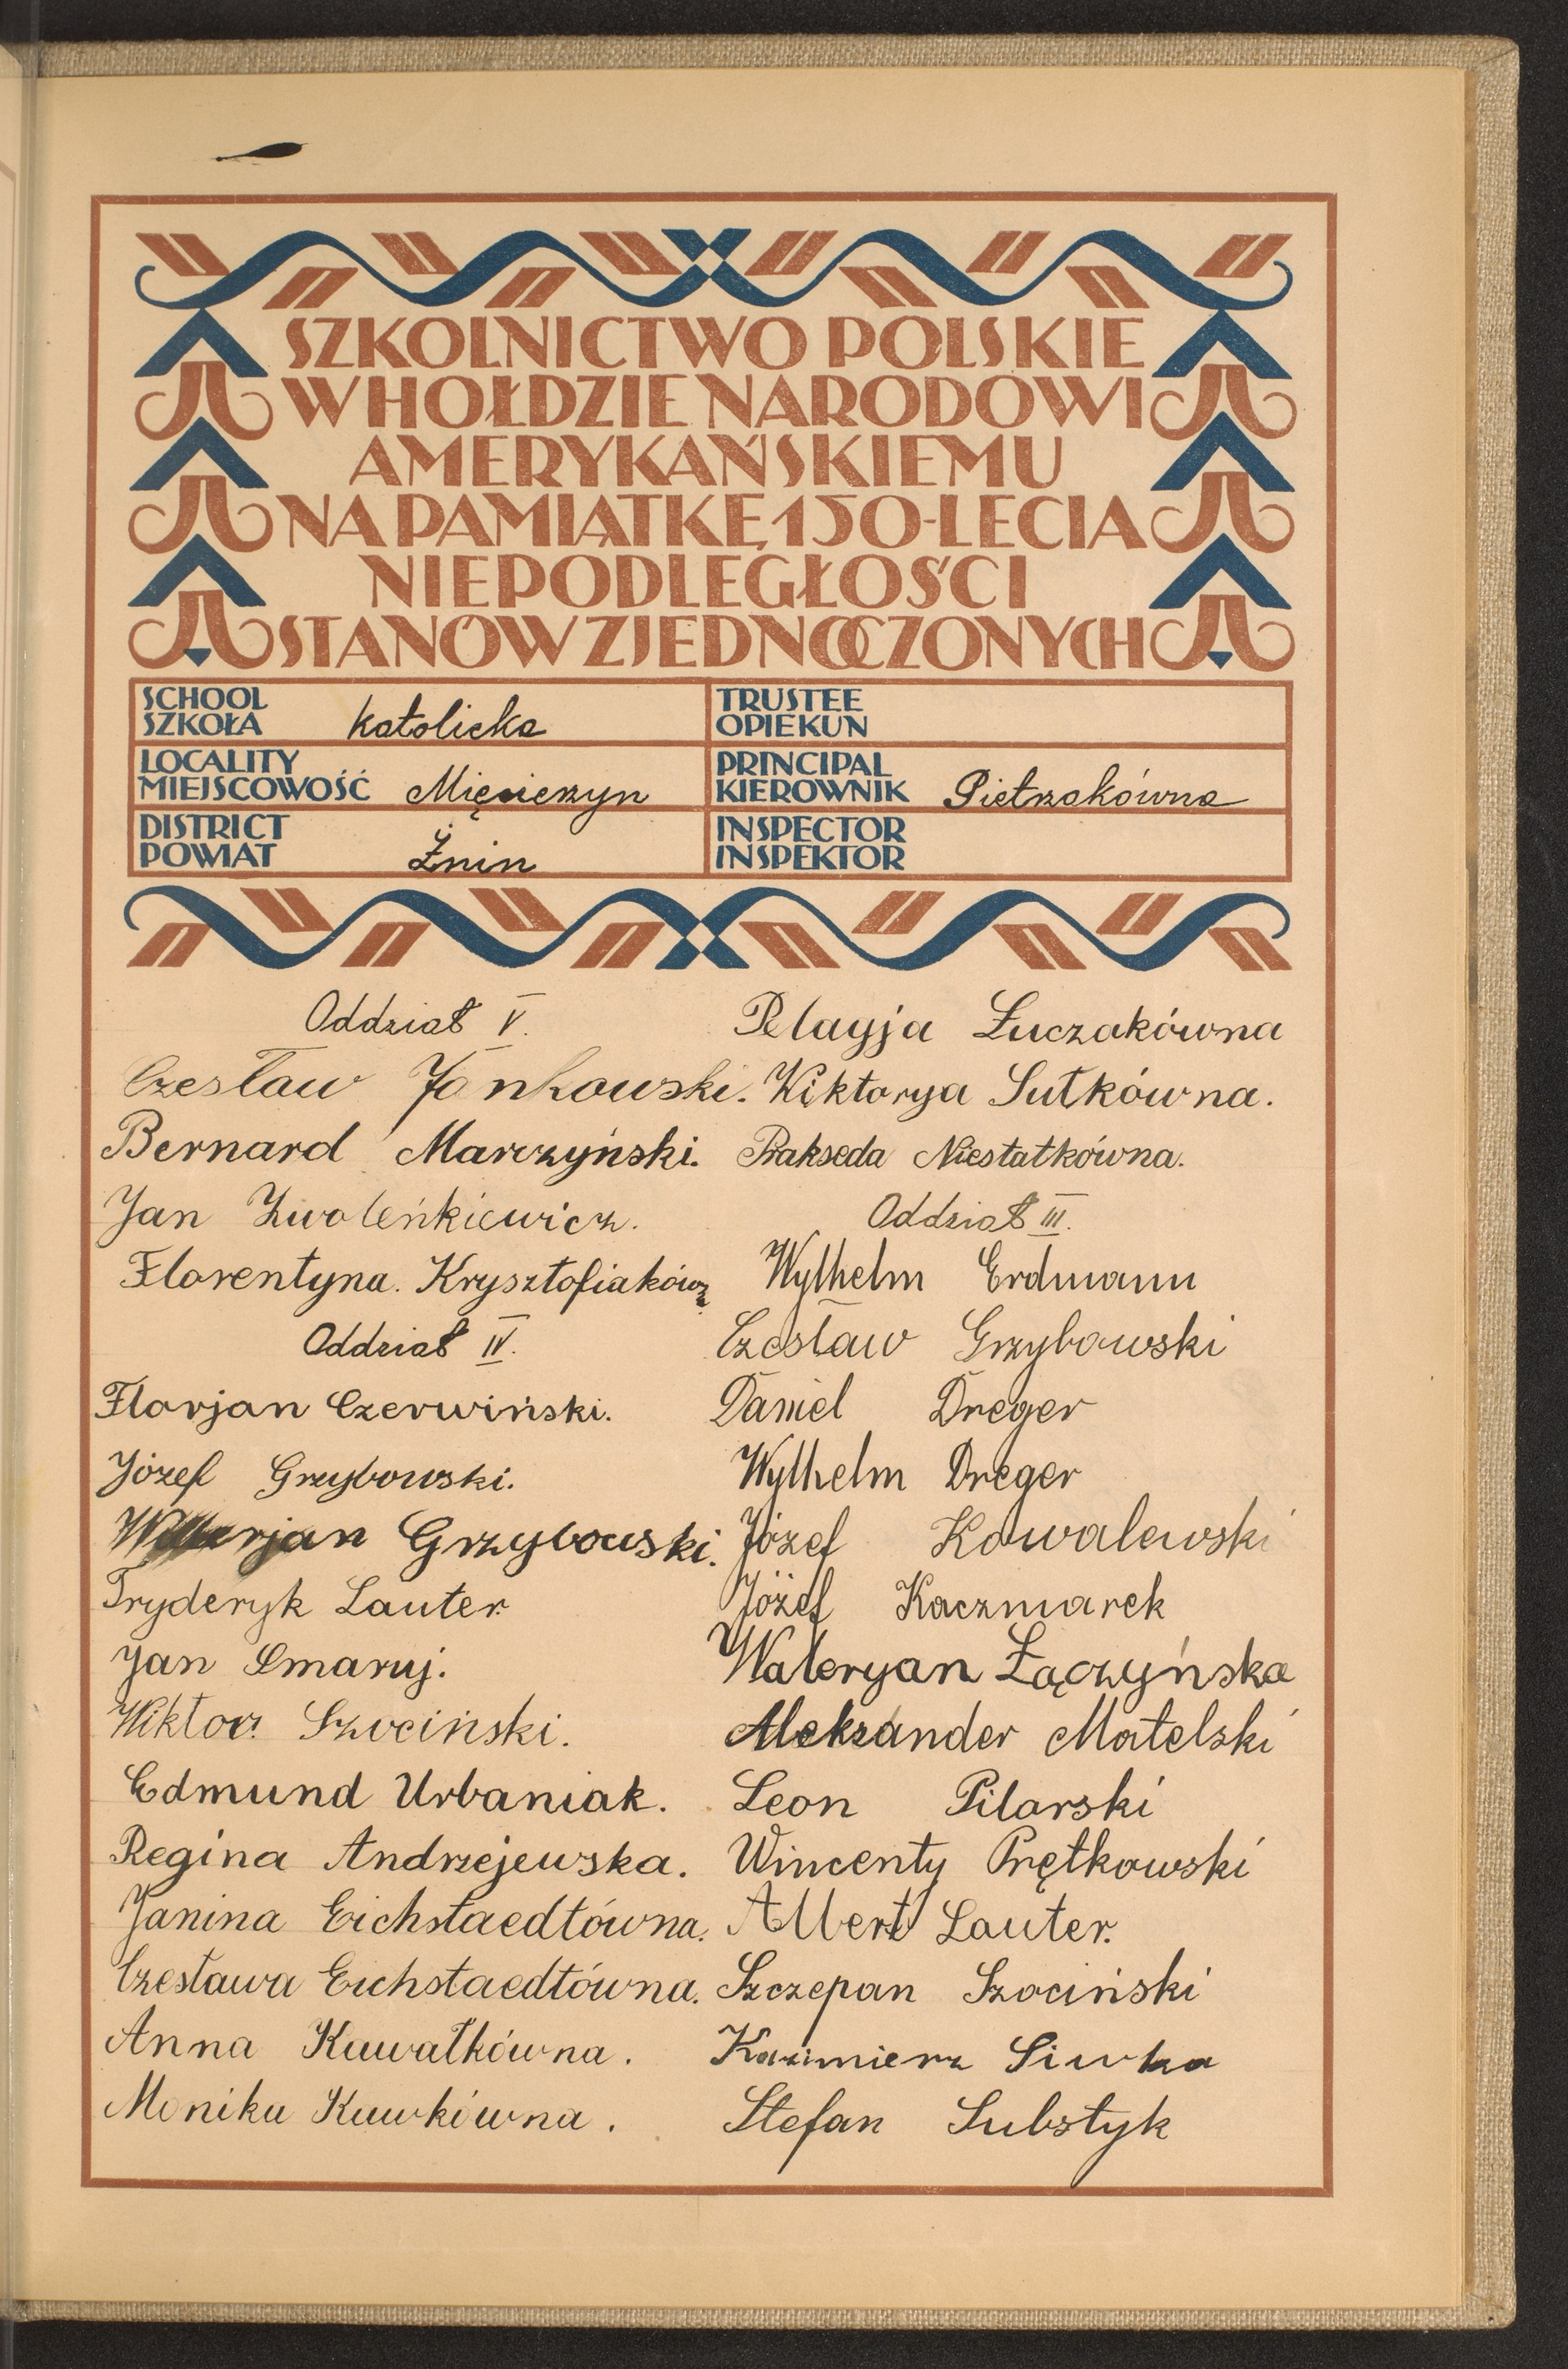 SZKOLNICTWO POLSKIE
W HOŁDZIE NARODOWI
AMERYKAŃSKIEMU
NA PAMIĄTKĘ 150-LECIA
NIEPODLEGŁOŚCI
STANÓW ZJEDNOCZONYCH
SCHOOL
SZKOŁA katolicka
TRUSTEE
OPIEKUN
LOCALITY
MIEJSCOWOŚĆ Mięcierzyn
PRINCIPAL
KIEROWNIK Pietrzakówna
DISTRICT
POWIAT Żnin
INSPECTOR
INSPEKTOR
Oddział V.
Czesław Jankowski.
Bernard Marczyński.
Jan Zwoleńkiewicz.
Florentyna. Krysztofiakówna
Oddział IV.
Florjan Czerwiński.
Józef Grzybowski.
Grzybowski.
Fryderyk Lauter
Jan Smaruj.
Wiktor Szociński.
Edmund Urbaniak.
Regina Andrzejewska.
Janina Eichstaedtówna.
Czesława Eichstaedtówna.
Anna Kawałkówna.
Monika Kawkówna.
Pelagja Łuczakówna
Wiktorya Sutkówna.
Prakseda Niestatkówna.
Oddział III.
Wylhelm Erdmann
Czesław Grzybowski
Daniel Dreger
Wylhelm Dreger
Józef Kowalewski
Józef Kaczmarek
Waleryan Łączyńska
Aleksander Matelski
Leon Pilarski
Wincenty Prętkowski
Albert Lauter.
Szczepan Szociński
Kazimierz Siwka
Stefan Substyk